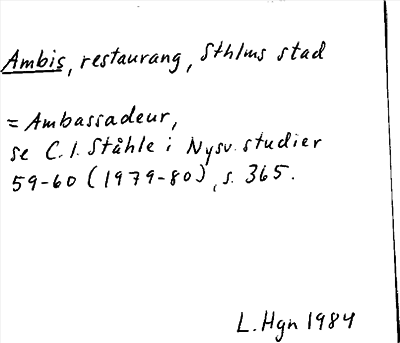 Ambis, restaurang, Sthlms stad
= Ambassadeur,
se C.I. Ståhle i Nysv. studier
59-60 (1979-80), s. 365.
L. Hgn 1984